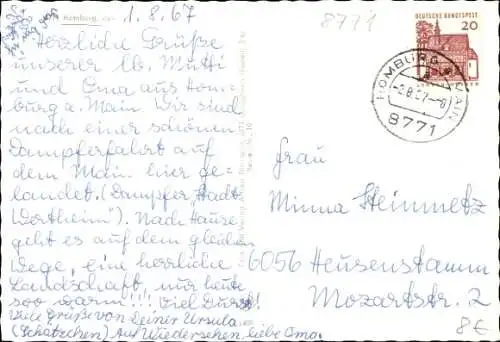 Homburg, den 1.8.67
8771
Herzliche Grüße
unserer lb. Mutti
und Oma aus Hom-
burg a. Main. Wir sind
nach einer schönen
Dampferfahrt auf
dem Main hier ge-
landet. (Dampfer „Stadt
Wertheim"). Nach Hause
geht es auf dem gleichen
Wege, eine herrliche
Landschaft, nur heute
soo warm!!! Viel Durst!
Viele Grüße von Deiner Ursula
(Schätzchen) Auf Wiedersehen, liebe Oma.
DEUTSCHE BUNDESPOST
20
HOMBURG (MAIN)
-2.8.67.-8
8771
Frau
Minna Steinmetz
6056 Heusenstamm
Mozartstr. 2
8€